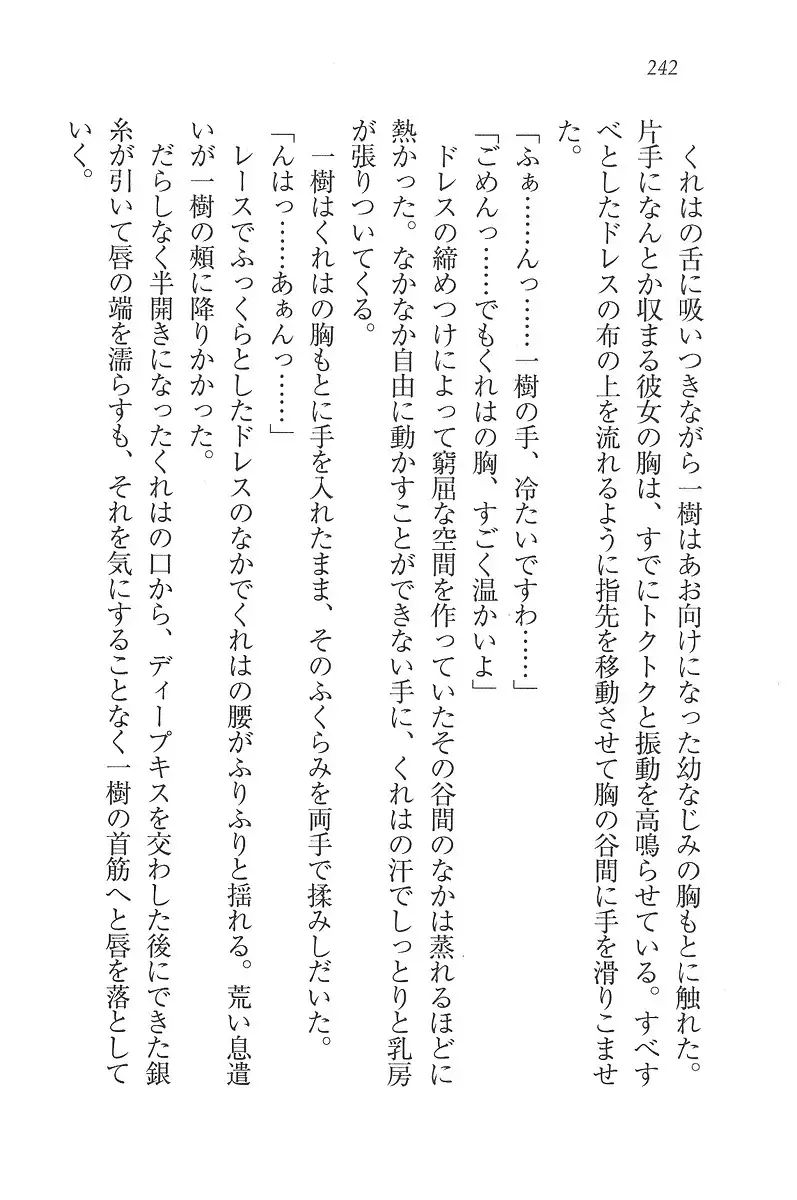 242
くれはの舌に吸いつきながら一樹はあお向けになった幼なじみの胸もとに触れた。
片手になんとか収まる彼女の胸は、すでにトクトクと振動を高鳴らせている。すべす
べとしたドレスの布の上を流れるように指先を移動させて胸の谷間に手を滑りこませ
た。
「ふぁ……んっ……一樹の手、冷たいですわ……」
「ごめんっ……でもくれはの胸、すごく温かいよ」
ドレスの締めつけによって窮屈な空間を作っていたその谷間のなかは蒸れるほどに
熱かった。なかなか自由に動かすことができない手に、くれはの汗でしっとりと乳房
が張りついてくる。
一樹はくれはの胸もとに手を入れたまま、そのふくらみを両手で揉みしだいた。
「んはっ……あぁんっ……」
レースでふっくらとしたドレスのなかでくれはの腰がふりふりと揺れる。荒い息遣
いが一樹の頬に降りかかった。
だらしなく半開きになったくれはの口から、ディープキスを交わした後にできた銀
糸が引いて唇の端を濡らすも、それを気にすることなく一樹の首筋へと唇を落として
いく。